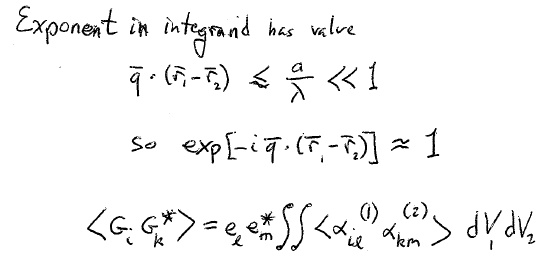 Exponent in integrand has value
q̄ · (r̄₁ - r̄₂) ≲ a/λ << 1
so exp[-i q̄ · (r̄₁ - r̄₂)] ≈ 1
<G_i G_k*> = e_l e_m* ∫∫ <α_il^(1) α_km^(2)> dV₁ dV₂